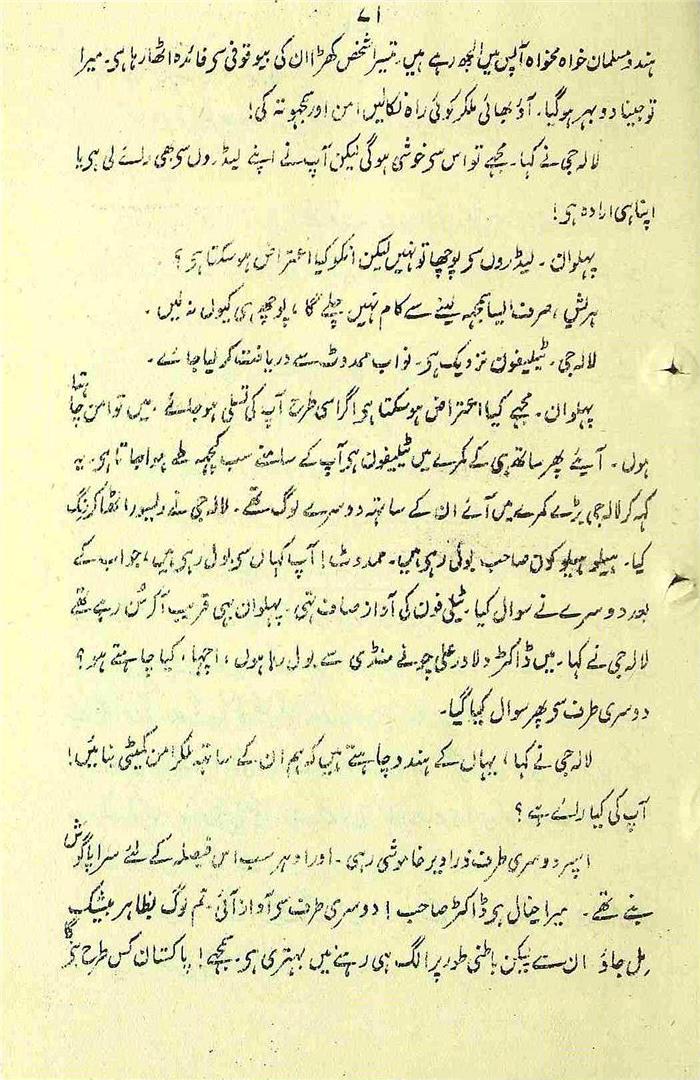 ۷۱
ہندو مسلمان خواہ مخواہ آپس میں الجھ رہے ہیں۔ تیسرا شخص کھڑا ان کی بیوقوفی سی فائدہ اٹھا رہا ہی۔ میرا
تو جینا دوبہر ہوگیا۔ آؤ بھائی ملکر کوئی راہ نکالیں امن اور سمجہوتہ کی!
لالہ جی نے کہا۔ مجہے تو اس سی خوشی ہوگی لیکن آپ نے اپنے لیڈروں سی بھی رائے لی ہی یا
اپنا ہی ارادہ ہی!
پہلوان۔ لیڈروں سی پوچھا تو نہیں لیکن انکو کیا اعتراض ہو سکتا ہی؟
ہرلش، صرف ایسا سمجہہ لینے سے کام نہیں چلے گا، پوچھ ہی کیوں نہ لیں۔
لالہ جی۔ ٹیلیفون نزدیک ہی۔ نواب ممدوٹ سے دریافت کر لیا جائے۔
پہلوان۔ مجہے کیا اعتراض ہو سکتا ہی اگر اسی طرح آپ کی تسلی ہو جائے۔ میں تو امن چاہتا
ہوں۔ آئیے پھر ساتھ ہی کے کمرے میں ٹیلیفون ہی آپ کے سامنے سب کچہہ طے ہوا جاتا ہی۔ یہ
کہہ کر لالہ جی بڑے کمرے میں آئے ان کے ساتہہ دوسرے لوگ تھے۔ لالہ جی نے رسیور اٹھا کر رنگ
کیا۔ ہیلو ہیلو کون صاحب بول رہی ہیں۔ ممدوٹ! آپ کہاں سی بول رہی ہیں، جواب کے
بعد دوسرے نے سوال کیا۔ ٹیلی فون کی آواز صاف تہی۔ پہلوان بہی قریب آ کر سُن رہے تھے
لالہ جی نے کہا۔ میں ڈاکٹر دلاور علی چونے منڈی سے بول رہا ہوں، اچہا، کیا چاہتے ہو؟
دوسری طرف سی پھر سوال کیا گیا۔
لالہ جی نے کہا، یہاں کے ہندو چاہتے ہیں کہ ہم ان کے ساتہہ ملکر امن کمیٹی بنائیں!
آپ کی کیا رائے ہے؟
اسپر دوسری طرف ذرا دیر خاموشی رہی۔ اور ادہر سب اس فیصلہ کے لئے سراپا گوش
بنے تھے۔ میرا خیال ہی ڈاکٹر صاحب! دوسری طرف سی آواز آئی۔ تم لوگ بظاہر بیشک
مِل جاؤ ان سے لیکن باطنی طور پر الگ ہی رہنے میں بہتری ہی۔ سمجہے! پاکستان کس طرح بنے گا